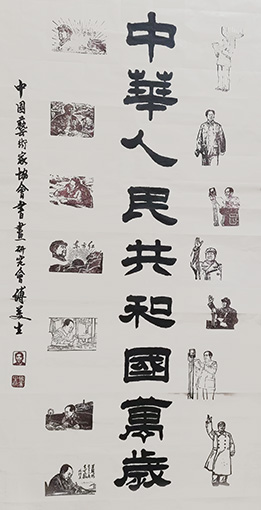 中華人民共和國萬歲
中国藝術家協會書畫研究會傅美生